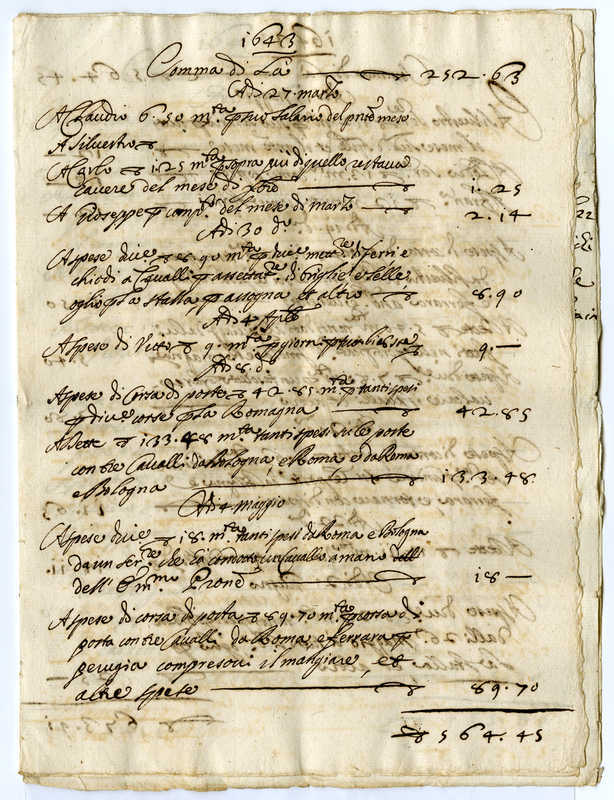 1643
Somma di La 252.63
Adi 27 marzo
A Claudio 6.50 mta p suo salario del pnte mese
A Silvestro
A Carlo 1.25 mta sopra più di quello restava
havere del mese di 1.25
A Giuseppe p del mese di marzo 2.14
Adi 30 do
A spese dive 8.90 mta p dive di ferri e
chiodi a Cavalli p di briglie e selle
oglio pla stalla, p assogna et altro 8.90
Adi 4 Aple
A spese di Vitto 9. mta p giorni 9.—
Adi 8 do
A spese di Corsa di poste 42.85 mta p tanti spesi
p dive corse p la Romagna 42.85
A dette 133.48 mta tanti spesi su le poste
con tre Cavalli da Bologna, e Roma e da Roma
e Bologna 133.48
Adi 4 Maggio
A spese dive 18. mta tanti spesi da Roma e Bologna
da un serre che ha condotto un Cavallo a mano dell
dell' Emmo Prone 18 —
A spese di corsa di posta 89.70 mta p corsa di
posta con tre Cavalli da Roma e Ferrara p
perugia compresovi il mangiare, et
altre spese 89.70
564.45